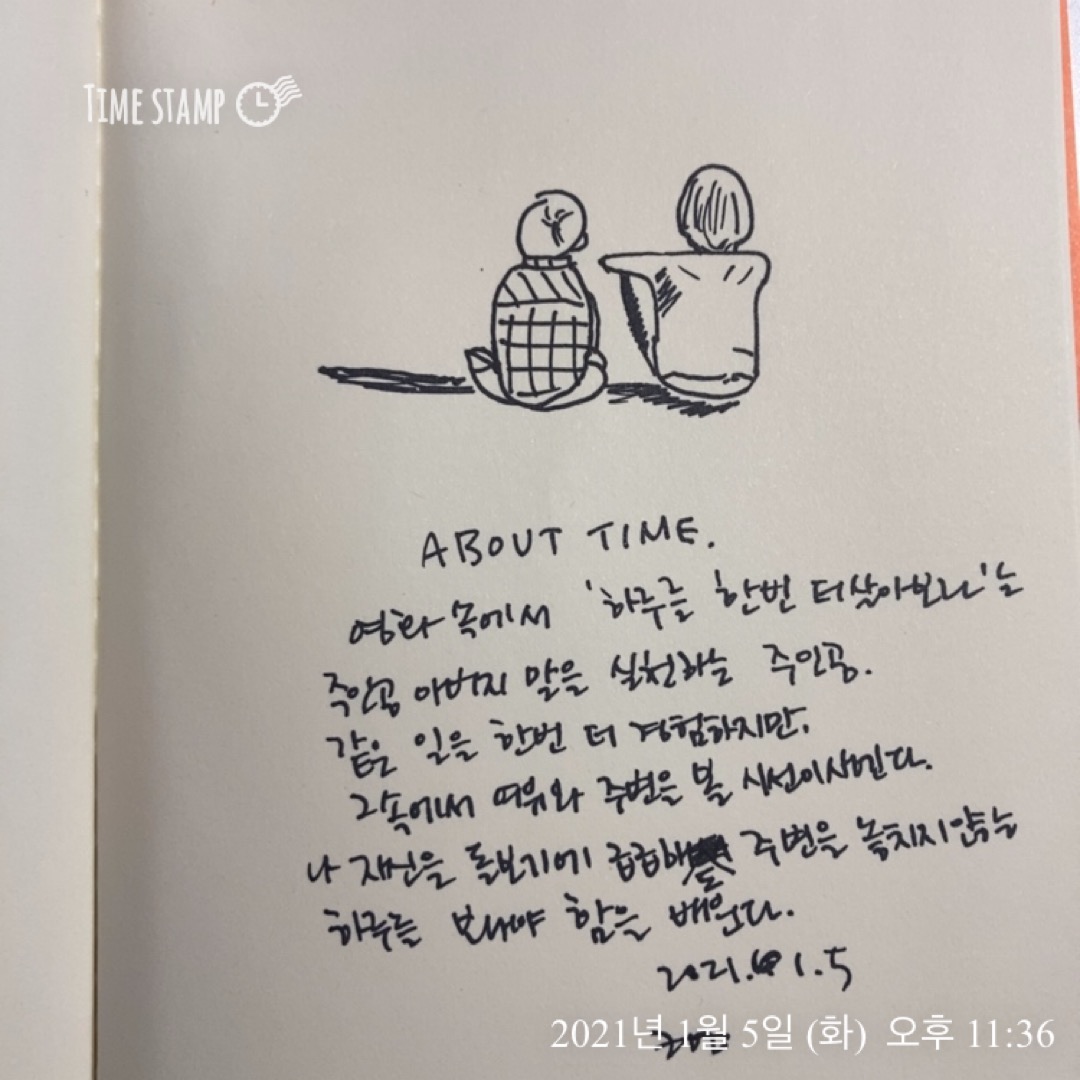 TIME STAMP
ABOUT TIME.
영화 속에서 '하루를 한번 더 살아보라'는
주인공 아버지 말을 실천하는 주인공.
같은 일을 한번 더 경험하지만,
그속에서 여유와 주변을 볼 시선이 생긴다.
나 자신을 돌보기에 급급해 주변을 놓치지 않는
하루를 보내야 함을 배운다.
2021. 1.5
2021년 1월 5일 (화) 오후 11:36